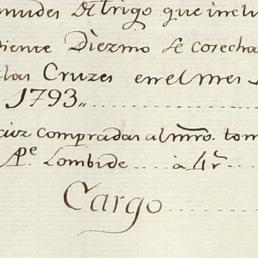 mudes de trigo que inclu
diente Diezmo se cosecha
las Cruzes en el mes
1793"
compradas al mro. tom
Pe. Lombide à 4r.
Cargo